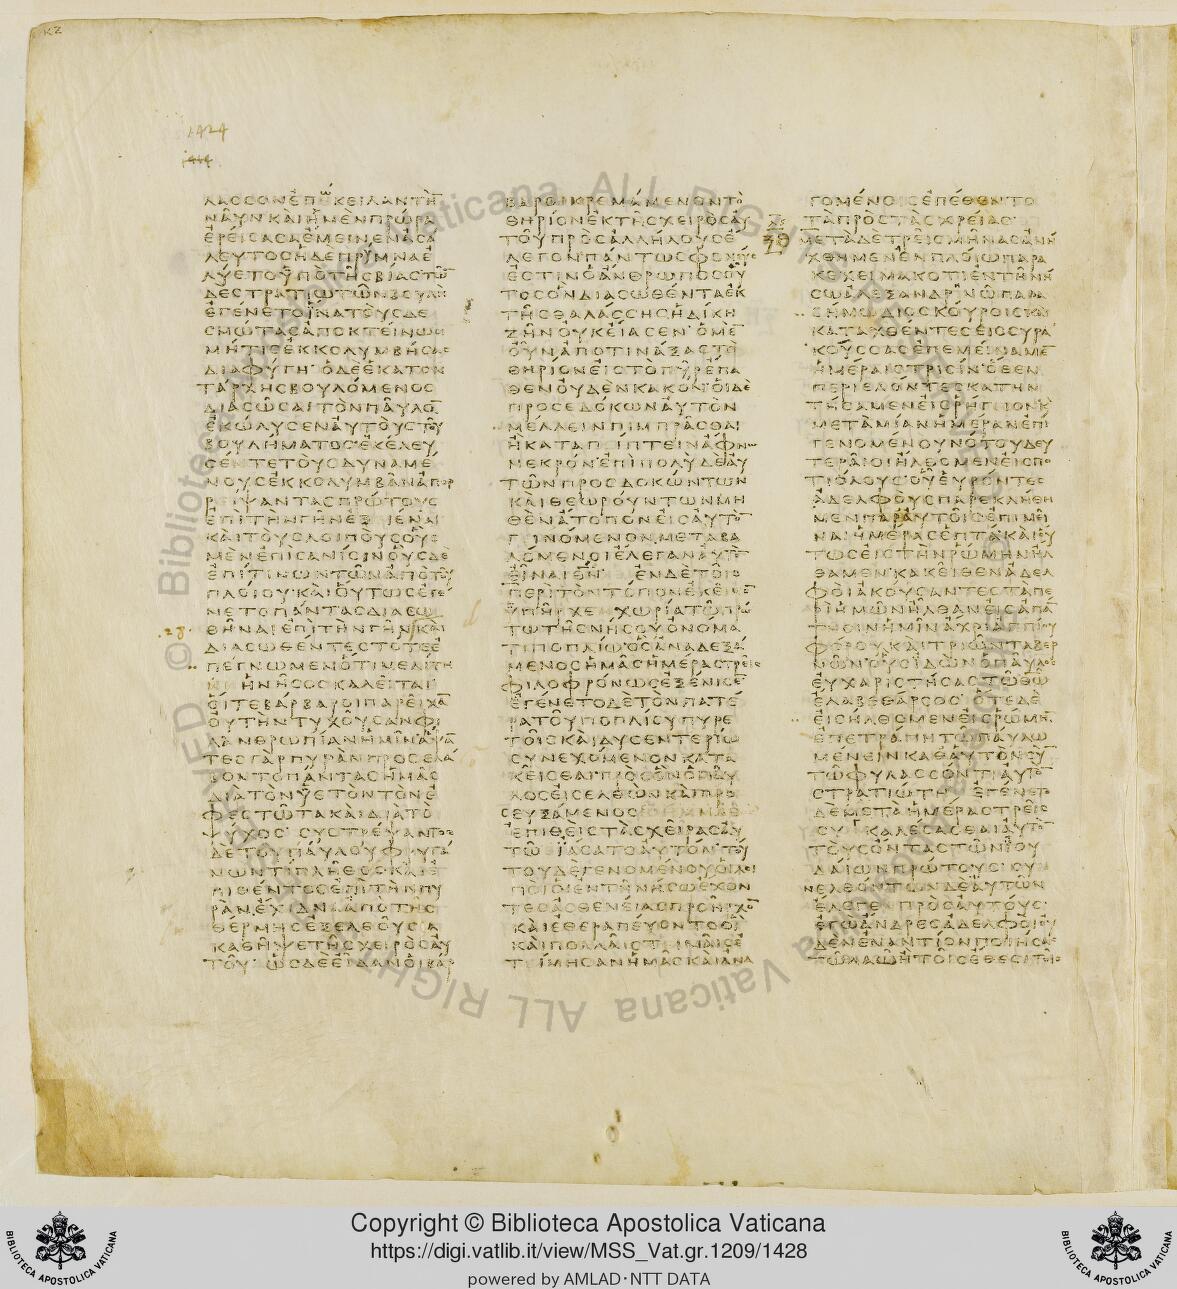 ΚΖ
1424
ΛΑΣΣΟΝ ΕΠΕΚΕΙΛΑΝ ΤΗ
ΝΑΥΝ ΚΑΙ Η ΜΕΝ ΠΡΩΡΑ
ΕΡΕΙΣΑΣΑ ΕΜΕΙΝΕΝ ΑΣΑ
ΛΕΥΤΟΣ Η ΔΕ ΠΡΥΜΝΑ Ε
ΛΥΕΤΟ ΥΠΟ ΤΗΣ ΒΙΑΣ ΤΩ
ΔΕ ΣΤΡΑΤΙΩΤΩΝ ΒΟΥΛΗ
ΕΓΕΝΕΤΟ ΙΝΑ ΤΟΥΣ ΔΕ
ΣΜΩΤΑΣ ΑΠΟΚΤΕΙΝΩΣΙ
ΜΗ ΤΙΣ ΕΚΚΟΛΥΜΒΗΣΑΣ
ΔΙΑΦΥΓΗ Ο ΔΕ ΕΚΑΤΟΝ
ΤΑΡΧΗΣ ΒΟΥΛΟΜΕΝΟΣ
ΔΙΑΣΩΣΑΙ ΤΟΝ ΠΑΥΛΟ
ΕΚΩΛΥΣΕΝ ΑΥΤΟΥΣ ΤΟΥ
ΒΟΥΛΗΜΑΤΟΣ ΕΚΕΛΕΥ
ΣΕΝ ΤΕ ΤΟΥΣ ΔΥΝΑΜΕ
ΝΟΥΣ ΕΚΚΟΛΥΜΒΑΝ ΑΠΟΡ
ΡΕΙΨΑΝΤΑΣ ΠΡΩΤΟΥΣ
ΕΠΙ ΤΗΝ ΓΗΝ ΕΞΙΕΝΑΙ
ΚΑΙ ΤΟΥΣ ΛΟΙΠΟΥΣ ΟΥΣ
ΜΕΝ ΕΠΙ ΣΑΝΙΣΙΝ ΟΥΣ ΔΕ
ΕΠΙ ΤΙΝΩΝ ΤΩΝ ΑΠΟ ΤΟΥ
ΠΛΟΙΟΥ ΚΑΙ ΟΥΤΩΣ ΕΓΕ
ΝΕΤΟ ΠΑΝΤΑΣ ΔΙΑΣΩ
ΘΗΝΑΙ ΕΠΙ ΤΗΝ ΓΗΝ ΚΑΙ
ΔΙΑΣΩΘΕΝΤΕΣ ΤΟΤΕ Ε
ΠΕΓΝΩΜΕΝ ΟΤΙ ΜΕΛΙΤΗ
Η ΝΗΣΟΣ ΚΑΛΕΙΤΑΙ
ΟΙ ΤΕ ΒΑΡΒΑΡΟΙ ΠΑΡΕΙΧΑ
ΟΥ ΤΗΝ ΤΥΧΟΥΣΑΝ ΦΙ
ΛΑΝΘΡΩΠΙΑΝ ΗΜΙΝ ΑΨΑ
ΤΕΣ ΓΑΡ ΠΥΡΑΝ ΠΡΟΣΕΛΑ
ΒΟΝΤΟ ΠΑΝΤΑΣ ΗΜΑΣ
ΔΙΑ ΤΟΝ ΥΕΤΟΝ ΤΟΝ Ε
ΦΕΣΤΩΤΑ ΚΑΙ ΔΙΑ ΤΟ
ΨΥΧΟΣ ΣΥΣΤΡΕΨΑΝΤΟΣ
ΔΕ ΤΟΥ ΠΑΥΛΟΥ ΦΡΥΓΑ
ΝΩΝ ΤΙ ΠΛΗΘΟΣ ΚΑΙ Ε
ΠΙΘΕΝΤΟΣ ΕΠΙ ΤΗΝ ΠΥ
ΡΑΝ ΕΧΙΔΝΑ ΑΠΟ ΤΗΣ
ΘΕΡΜΗΣ ΕΞΕΛΘΟΥΣΑ
ΚΑΘΗΨΕ ΤΗΣ ΧΕΙΡΟΣ ΑΥ
ΤΟΥ ΩΣ ΔΕ ΕΙΔΑΝ ΟΙ ΒΑΡ
ΒΑΡΟΙ ΚΡΕΜΑΜΕΝΟΝ ΤΟ
ΘΗΡΙΟΝ ΕΚ ΤΗΣ ΧΕΙΡΟΣ ΑΥ
ΤΟΥ ΠΡΟΣ ΑΛΛΗΛΟΥΣ Ε
ΛΕΓΟΝ ΠΑΝΤΩΣ ΦΟΝΕΥΣ
ΕΣΤΙΝ Ο ΑΝΘΡΩΠΟΣ ΟΥ
ΤΟΣ ΟΝ ΔΙΑΣΩΘΕΝΤΑ ΕΚ
ΤΗΣ ΘΑΛΑΣΣΗΣ Η ΔΙΚΗ
ΖΗΝ ΟΥΚ ΕΙΑΣΕΝ Ο ΜΕ
ΟΥΝ ΑΠΟΤΙΝΑΞΑΣ ΤΟ
ΘΗΡΙΟΝ ΕΙΣ ΤΟ ΠΥΡ ΕΠΑ
ΘΕΝ ΟΥΔΕΝ ΚΑΚΟΝ ΟΙ ΔΕ
ΠΡΟΣΕΔΟΚΩΝ ΑΥΤΟΝ
ΜΕΛΛΕΙΝ ΠΙΜΠΡΑΣΘΑΙ
Η ΚΑΤΑΠΙΠΤΕΙΝ ΑΦΝΩ
ΝΕΚΡΟΝ ΕΠΙ ΠΟΛΥ ΔΕ ΑΥ
ΤΩΝ ΠΡΟΣΔΟΚΩΝΤΩΝ
ΚΑΙ ΘΕΩΡΟΥΝΤΩΝ ΜΗ
ΘΕΝ ΑΤΟΠΟΝ ΕΙΣ ΑΥΤΟ
ΓΙΝΟΜΕΝΟΝ ΜΕΤΑΒΑ
ΛΟΜΕΝΟΙ ΕΛΕΓΑΝ ΑΥΤΟ
ΕΙΝΑΙ ΘΝ ΕΝ ΔΕ ΤΟΙΣ
ΠΕΡΙ ΤΟΝ ΤΟΠΟΝ ΕΚΕΙΝΟ
ΥΠΗΡΧΕΝ ΧΩΡΙΑ ΤΩ ΠΡΩ
ΤΩ ΤΗΣ ΝΗΣΟΥ ΟΝΟΜΑ
ΤΙ ΠΟΠΛΙΩ ΟΣ ΑΝΑΔΕΞΑ
ΜΕΝΟΣ ΗΜΑΣ ΗΜΕΡΑΣ ΤΡΕΙΣ
ΦΙΛΟΦΡΟΝΩΣ ΕΞΕΝΙΣΕ
ΕΓΕΝΕΤΟ ΔΕ ΤΟΝ ΠΑΤΕ
ΡΑ ΤΟΥ ΠΟΠΛΙΟΥ ΠΥΡΕ
ΤΟΙΣ ΚΑΙ ΔΥΣΕΝΤΕΡΙΩ
ΣΥΝΕΧΟΜΕΝΟΝ ΚΑΤΑ
ΚΕΙΣΘΑΙ ΠΡΟΣ ΟΝ Ο ΠΑΥ
ΛΟΣ ΕΙΣΕΛΘΩΝ ΚΑΙ ΠΡΟ
ΣΕΥΞΑΜΕΝΟΣ
ΕΠΙΘΕΙΣ ΤΑΣ ΧΕΙΡΑΣ ΑΥ
ΤΩ ΙΑΣΑΤΟ ΑΥΤΟΝ ΤΟΥ
ΤΟΥ ΔΕ ΓΕΝΟΜΕΝΟΥ ΟΙ ΛΟΙ
ΠΟΙ ΟΙ ΕΝ ΤΗ ΝΗΣΩ ΕΧΟΝ
ΤΕΣ ΑΣΘΕΝΕΙΑΣ ΠΡΟΣΗΡΧΟ
ΚΑΙ ΕΘΕΡΑΠΕΥΟΝΤΟ ΟΙ
ΚΑΙ ΠΟΛΛΑΙΣ ΤΕΙΜΑΙΣ Ε
ΤΕΙΜΗΣΑΝ ΗΜΑΣ ΚΑΙ ΑΝΑ
ΓΟΜΕΝΟΙΣ ΕΠΕΘΕΝΤΟ
ΤΑ ΠΡΟΣ ΤΑΣ ΧΡΕΙΑΣ
ΜΕΤΑ ΔΕ ΤΡΕΙΣ ΜΗΝΑΣ ΑΝΗ
ΧΘΗΜΕΝ ΕΝ ΠΛΟΙΩ ΠΑΡΑ
ΚΕΧΕΙΜΑΚΟΤΙ ΕΝ ΤΗ ΝΗ
ΣΩ ΑΛΕΞΑΝΔΡΙΝΩ ΠΑΡΑ
ΣΗΜΩ ΔΙΟΣΚΟΥΡΟΙΣ ΚΑΙ
ΚΑΤΑΧΘΕΝΤΕΣ ΕΙΣ ΣΥΡΑ
ΚΟΥΣΣΑΣ ΕΠΕΜΕΙΝΑΜΕ
ΗΜΕΡΑΙΣ ΤΡΙΣΙΝ ΟΘΕΝ
ΠΕΡΙΕΛΟΝΤΕΣ ΚΑΤΗΝ
ΤΗΣΑΜΕΝ ΕΙΣ ΡΗΓΙΟΝ Κ
ΜΕΤΑ ΜΙΑΝ ΗΜΕΡΑΝ ΕΠΙ
ΓΕΝΟΜΕΝΟΥ ΝΟΤΟΥ ΔΕΥ
ΤΕΡΑΙΟΙ ΗΛΘΟΜΕΝ ΕΙΣ ΠΟ
ΤΙΟΛΟΥΣ ΟΥ ΕΥΡΟΝΤΕΣ
ΑΔΕΛΦΟΥΣ ΠΑΡΕΚΛΗΘΗ
ΜΕΝ ΠΑΡ ΑΥΤΟΙΣ ΕΠΙΜΕΙ
ΝΑΙ ΗΜΕΡΑΣ ΕΠΤΑ ΚΑΙ ΟΥ
ΤΩΣ ΕΙΣ ΤΗΝ ΡΩΜΗΝ ΗΛ
ΘΑΜΕΝ ΚΑΚΕΙΘΕΝ ΑΔΕΛ
ΦΟΙ ΑΚΟΥΣΑΝΤΕΣ ΤΑ ΠΕ
ΡΙ ΗΜΩΝ ΗΛΘΑΝ ΕΙΣ ΑΠΑ
ΤΗΣΙΝ ΗΜΙΝ ΑΧΡΙ ΑΠΠΙΟΥ
ΦΟΡΟΥ ΚΑΙ ΤΡΙΩΝ ΤΑΒΕΡ
ΝΩΝ ΟΥΣ ΙΔΩΝ Ο ΠΑΥΛΟΣ
ΕΥΧΑΡΙΣΤΗΣΑΣ ΤΩ ΘΩ
ΕΛΑΒΕ ΘΑΡΣΟΣ ΟΤΕ ΔΕ
ΕΙΣΗΛΘΟΜΕΝ ΕΙΣ ΡΩΜΗ
ΕΠΕΤΡΑΠΗ ΤΩ ΠΑΥΛΩ
ΜΕΝΕΙΝ ΚΑΘ ΑΥΤΟΝ ΣΥ
ΤΩ ΦΥΛΑΣΣΟΝΤΙ ΑΥΤΟ
ΣΤΡΑΤΙΩΤΗ ΕΓΕΝΕΤΟ
ΔΕ ΜΕΤΑ ΗΜΕΡΑΣ ΤΡΕΙΣ
ΣΥΓΚΑΛΕΣΑΣΘΑΙ ΑΥΤΟ
ΤΟΥΣ ΟΝΤΑΣ ΤΩΝ ΙΟΥ
ΔΑΙΩΝ ΠΡΩΤΟΥΣ ΣΥ
ΝΕΛΘΟΝΤΩΝ ΔΕ ΑΥΤΩΝ
ΕΛΕΓΕ ΠΡΟΣ ΑΥΤΟΥΣ
ΕΓΩ ΑΝΔΡΕΣ ΑΔΕΛΦΟΙ ΟΥ
ΔΕΝ ΕΝΑΝΤΙΟΝ ΠΟΙΗΣΑΣ
ΤΩ ΛΑΩ Η ΤΟΙΣ ΕΘΕΣΙ ΤΟΙΣ
Copyright © Biblioteca Apostolica Vaticana
https://digi.vatlib.it/view/MSS_Vat.gr.1209/1428
powered by AMLAD·NTT DATA